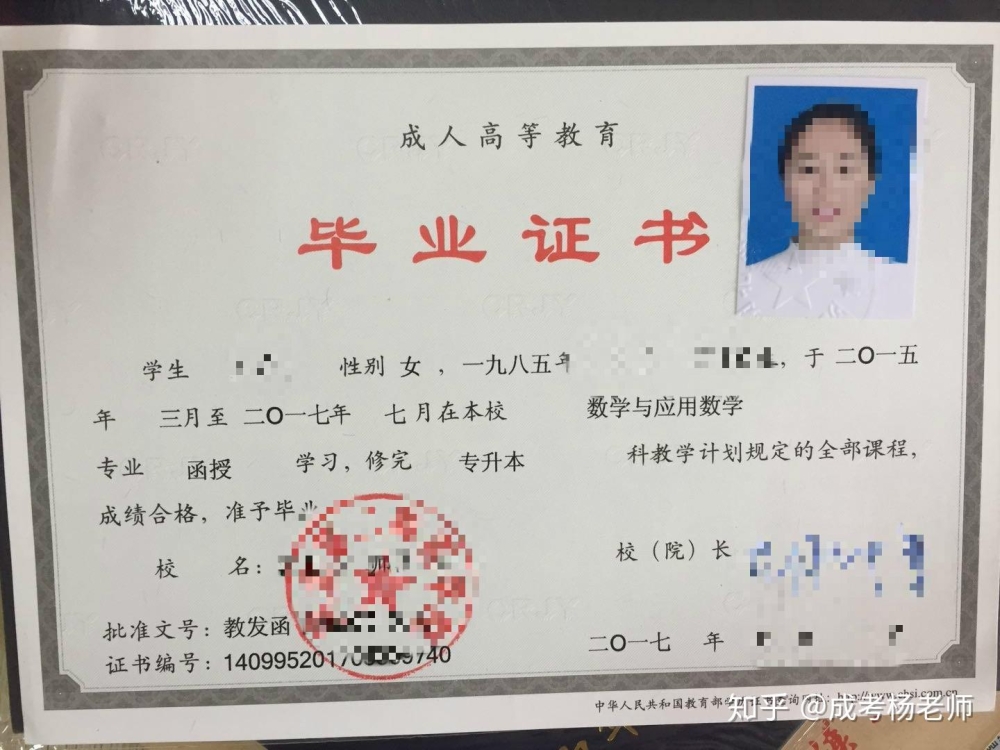 成人高等教育
毕业证书
学生 性别 女 ，一九八五年 ，于 二〇一五
年 三月至 二〇一七年 七 月在本校 数学与应用数学
专业 函授 学习，修完 专升本 科教学计划规定的全部课程，
成绩合格，准予毕业
校 名： 校（院）长
批准文号：教发函
二〇一七 年
证书编号：
中华人民共和国教育部 http://www.chsi.com.cn
知乎 @成考杨老师